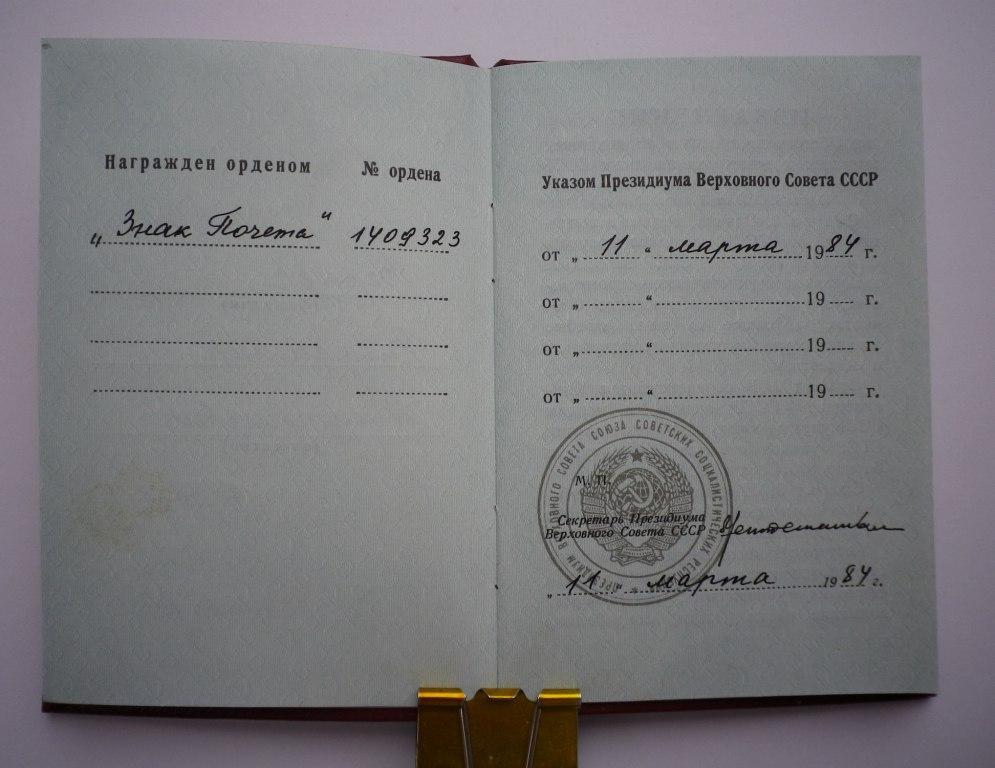 Награжден орденом № ордена
„Знак Почета“ 1409323
Указом Президиума Верховного Совета СССР
от „ 11 “ марта 1984 г.
от „ “ 19 г.
от „ “ 19 г.
от „ “ 19 г.
ПРЕЗИДИУМ ВЕРХОВНОГО СОВЕТА СОЮЗА СОВЕТСКИХ СОЦИАЛИСТИЧЕСКИХ РЕСП
М. П.
Секретарь Президиума
Верховного Совета СССР
„ 11 “ марта 1984 г.